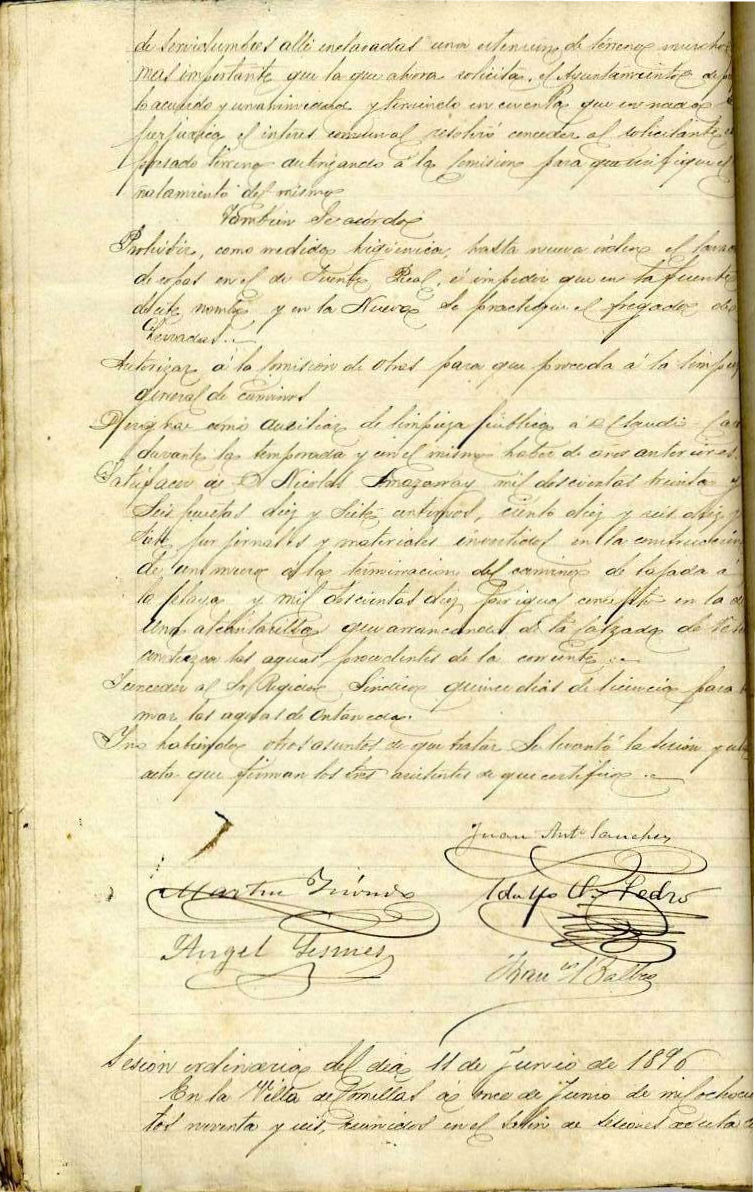 de servidumbres alli enclavadas una estension de terreno mucho
mas importante que la que ahora solicita, el Ayuntamiento de
acuerdo y unanimidad y teniendo en cuenta que en nada
perjudica el interés comunal resolvió conceder al solicitante el
presado terreno autorizando á la Comision para que verifique el
del mismo
Tambien se acordo
Prohibir, como medida higienica, hasta nueva órden el lavado
de ropas en el de Fuente Real, é impedir que en la fuente
de este nombre y en la Nueva se practique el fregado de
herradas.
Autorizar á la Comisión de Obras para que proceda á la limpie
general de caminos
como auxiliar de limpieza pública á D. Claudio
durante la temporada y con el mismo haber de años anteriores.
Satisfacer á D. Nicolás mil doscientas treinta y
seis pesetas diez y siete centimos, ciento diez y seis diez y
siete por jornales y materiales invertidos en la construcción
de un muro á la terminacion del camino de bajada á
la playa y mil doscientas diez por igual concepto en la de
una alcantarilla que arrancando de la calzada de
conduzca las aguas procedentes de la corriente
Conceder al Sr. Regidor Síndico quince dias de licencia para to
mar las aguas de Ontaneda.
Y no habiendo otros asuntos de que tratar se levantó la sesión y
acta que firman los tres asistentes de que certifico
Juan Antº Sanchez
Martin
Adolfo de Pedro
Angel
Sesión ordinaria del dia 11 de Junio de 1896
En la Villa de Comillas á once de Junio de mil ochocien
tos noventa y seis, reunidos en el salón de sesiones de esta